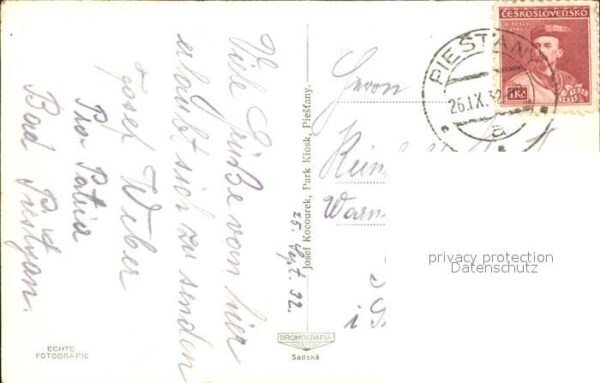 Viele Grüße von hier
erlaubt sich zu senden
Josef Weber
Pro Patria
Bad Pistyan.
25. Sept. 32.
ECHTE
FOTOGRAFIE
Josef Kocourek, Park Kiosk, Piešťany.
BROMOGRAFIA
Sadská
ČESKOSLOVENSKO
PIEŠŤANY
26.IX.32
a
Herrn
privacy protection
Datenschutz